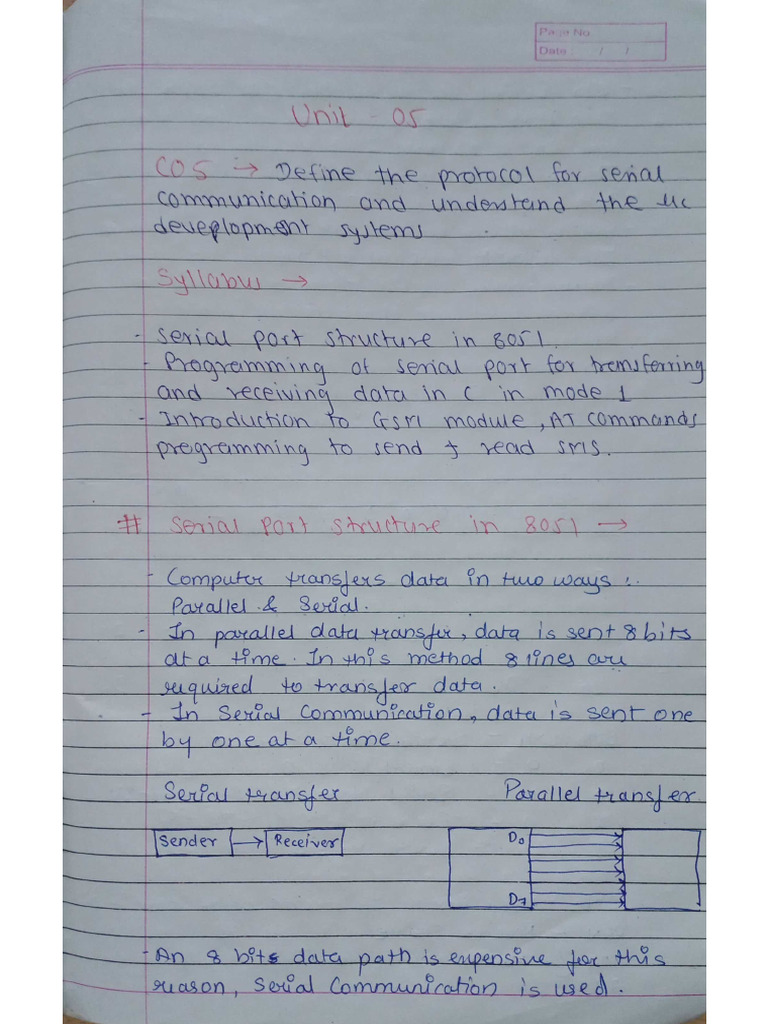 Page No
Date : / /
Unit - 05
CO5 → Define the protocol for serial
communication and understand the uc
deveplopment systems
Syllabus →
- Serial port structure in 8051.
- Programming of serial port for transferring
and receiving data in C in mode 1
- Introduction to GSM module, AT commands
programming to send & read SMS.
# Serial Port Structure in 8051 →
- Computer transfers data in two ways :.
Parallel & Serial.
- In parallel data transfer, data is sent 8 bits
at a time. In this method 8 lines are
required to transfer data.
- In Serial Communication, data is sent one
by one at a time.
Serial transfer Parallel transfer
Sender → Receiver D0
D7
- An 8 bits data path is expensive for this
reason, Serial Communication is used.